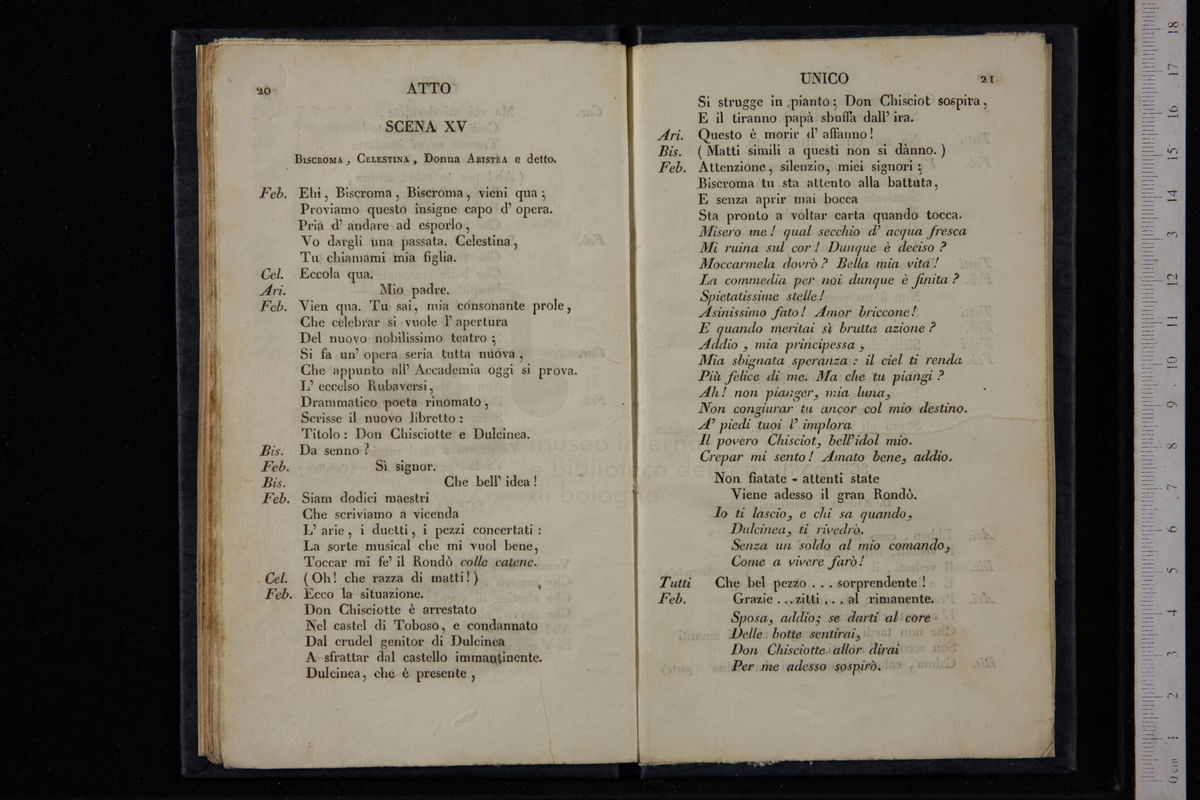 20 ATTO
SCENA XV
BISCROMA, CELESTINA, Donna ARISTEA e detto.
Feb. Ehi, Biscroma, Biscroma, vieni qua;
Proviamo questo insigne capo d'opera.
Pria d'andare ad esporlo,
Vo dargli una passata. Celestina,
Tu chiamami mia figlia.
Cel. Eccola qua.
Ari. Mio padre.
Feb. Vien qua. Tu sai, mia consonante prole,
Che celebrar si vuole l'apertura
Del nuovo nobilissimo teatro;
Si fa un'opera seria tutta nuova,
Che appunto all'Accademia oggi si prova.
L'eccelso Rubaversi,
Drammatico poeta rinomato,
Scrisse il nuovo libretto:
Titolo: Don Chisciotte e Dulcinea.
Bis. Da senno?
Feb. Sì signor.
Bis. Che bell'idea!
Feb. Siam dodici maestri
Che scriviamo a vicenda
L'arie, i duetti, i pezzi concertati:
La sorte musical che mi vuol bene,
Toccar mi fe' il Rondò colle catene.
Cel. (Oh! che razza di matti!)
Feb. Ecco la situazione.
Don Chisciotte è arrestato
Nel castel di Toboso, e condannato
Dal crudel genitor di Dulcinea
A sfrattar dal castello immantinente.
Dulcinea, che è presente,
UNICO 21
Si strugge in pianto; Don Chisciot sospira,
E il tiranno papà sbuffa dall'ira.
Ari. Questo è morir d'affanno!
Bis. (Matti simili a questi non si dànno.)
Feb. Attenzione, silenzio, miei signori;
Biscroma tu sta attento alla battuta,
E senza aprir mai bocca
Sta pronto a voltar carta quando tocca.
Misero me! qual secchio d'acqua fresca
Mi ruina sul cor! Dunque è deciso?
Moccarmela dovrò? Bella mia vita!
La commedia per noi dunque è finita?
Spietatissime stelle!
Asinissimo fato! Amor briccone!
E quando meritai sì brutta azione?
Addio, mia principessa,
Mia sbignata speranza: il ciel ti renda
Più felice di me. Ma che tu piangi?
Ah! non pianger, mia luna,
Non congiurar tu ancor col mio destino.
A' piedi tuoi l'implora
Il povero Chisciot, bell'idol mio.
Crepar mi sento! Amato bene, addio.
Non fiatate - attenti state
Viene adesso il gran Rondò.
Io ti lascio, e chi sa quando,
Dulcinea, ti rivedrò.
Senza un soldo al mio comando,
Come a vivere farò!
Tutti Che bel pezzo... sorprendente!
Feb. Grazie...zitti... al rimanente.
Sposa, addio; se darti al core
Delle botte sentirai,
Don Chisciotte allor dirai
Per me adesso sospirò.
museo internazionale
e biblioteca della musica
di bologna